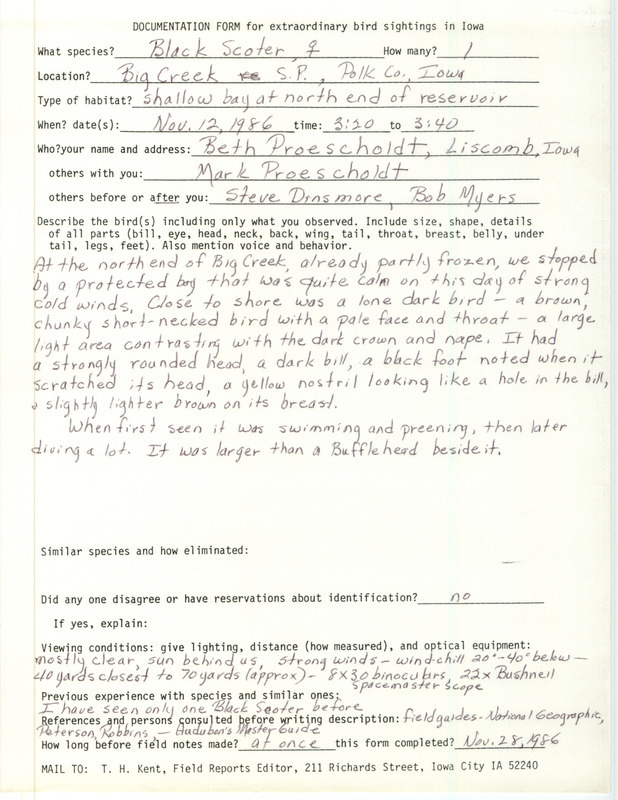 DOCUMENTATION FORM for extraordinary bird sightings in Iowa
What species? Black Scoter, ♀ How many? 1
Location? Big Creek S.P., Polk Co., Iowa
Type of habitat? shallow bay at north end of reservoir
When? date(s): Nov. 12, 1986 time: 3:20 to 3:40
Who?your name and address: Beth Proescholdt, Liscomb, Iowa
others with you: Mark Proescholdt
others before or after you: Steve Dinsmore, Bob Myers
Describe the bird(s) including only what you observed. Include size, shape, details
of all parts (bill, eye, head, neck, back, wing, tail, throat, breast, belly, under
tail, legs, feet). Also mention voice and behavior.
At the north end of Big Creek, already partly frozen, we stopped
by a protected bay that was quite calm on this day of strong
cold winds. Close to shore was a lone dark bird - a brown,
chunky short-necked bird with a pale face and throat - a large
light area contrasting with the dark crown and nape. It had
a strongly rounded head, a dark bill, a black foot noted when it
scratched its head, a yellow nostril looking like a hole in the bill,
& slightly lighter brown on its breast.
When first seen it was swimming and preening, then later
diving a lot. It was larger than a Bufflehead beside it.
Similar species and how eliminated:
Did any one disagree or have reservations about identification? no
If yes, explain:
Viewing conditions: give lighting, distance (how measured), and optical equipment:
mostly clear, sun behind us, strong winds - wind-chill 20°-40° below -
40 yards closest to 70 yards (approx) - 8X30 binoculars, 22x Bushnell
spacemaster scope
Previous experience with species and similar ones:
I have seen only one Black Scoter before
References and persons consulted before writing description: fieldguides - National Geographic,
Peterson, Robbins - Audubon's Master Guide
How long before field notes made? at once this form completed? Nov. 28, 1986
MAIL TO: T. H. Kent, Field Reports Editor, 211 Richards Street, Iowa City IA 52240